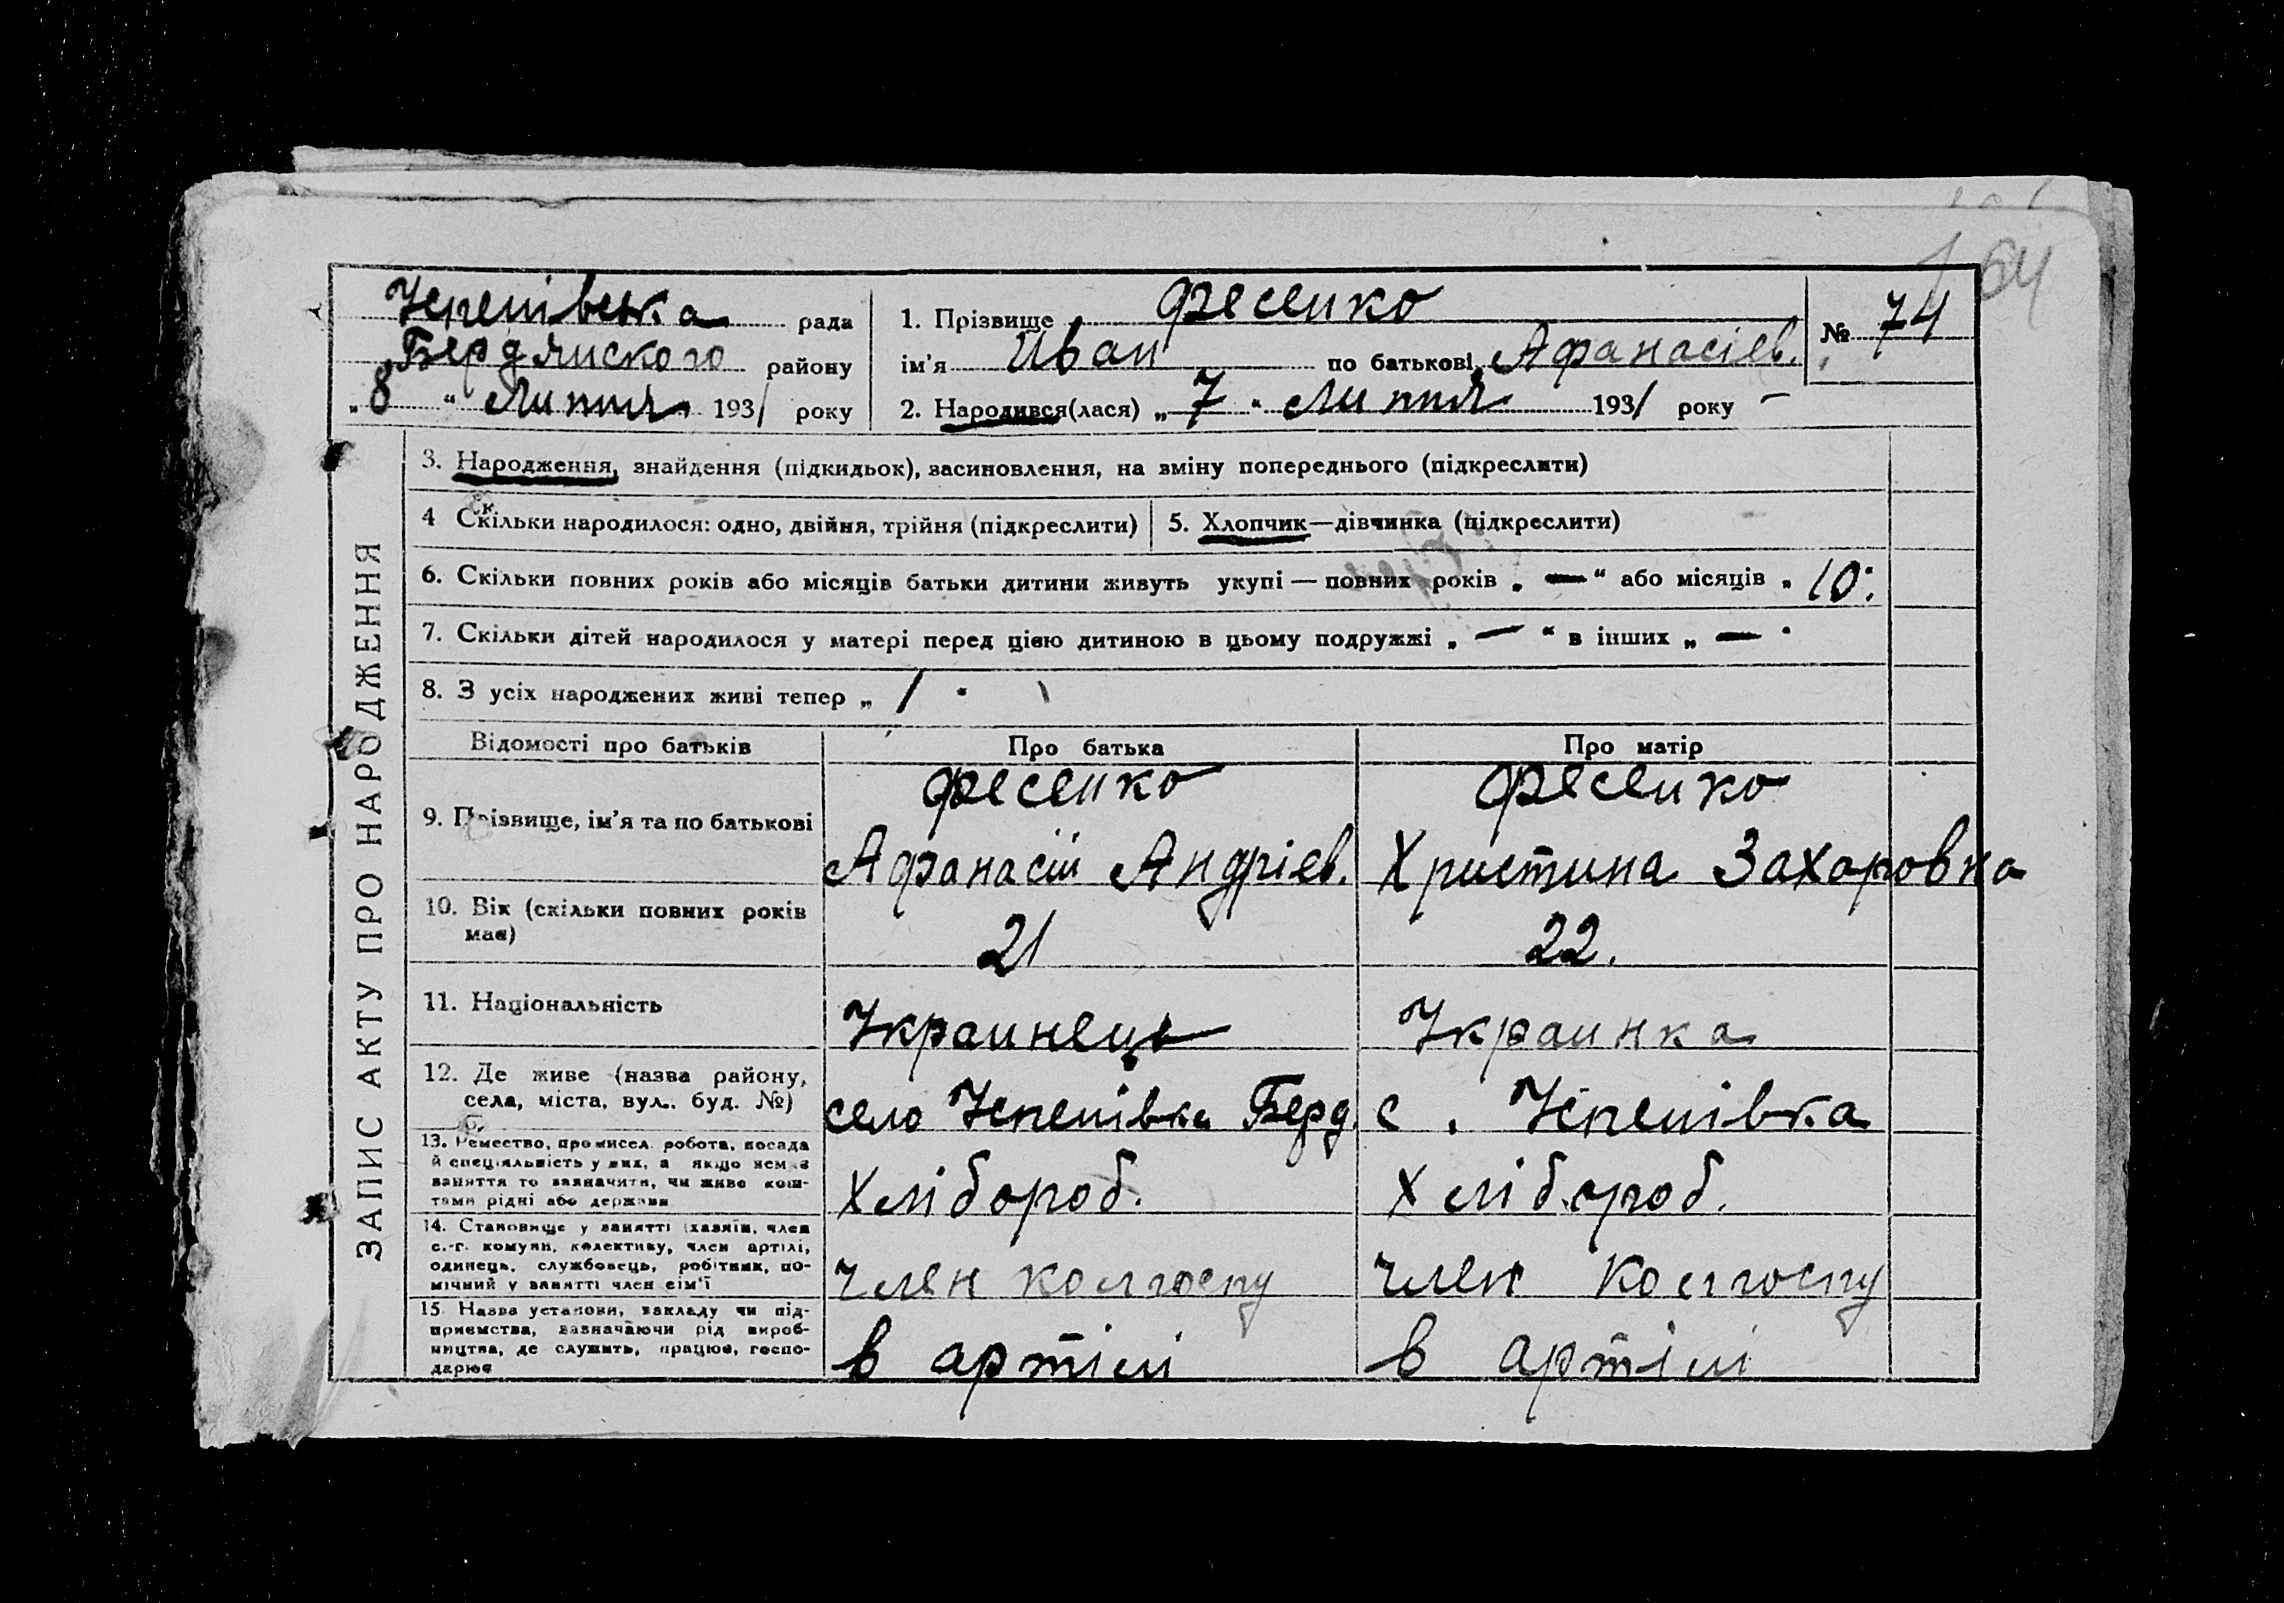 164
Успенівська рада
Бердянского району
„8“ Липня 1931 року
1. Прізвище Фесенко
ім’я Иван по батькові Афанасіев.
№ 74
2. Народився(лася) „7“ Липня 1931 року —
ЗАПИС АКТУ ПРО НАРОДЖЕННЯ
3. Народження, знайдення (підкидьок), засиновлення, на зміну попереднього (підкреслити)
4 Скільки народилося: одно, двійня, трійня (підкреслити)
5. Хлопчик—дівчинка (підкреслити)
6. Скільки повних років або місяців батьки дитини живуть укупі — повних років „ — “ або місяців „ 10.
7. Скільки дітей народилося у матері перед цією дитиною в цьому подружжі „ — “ в інших „ — “
8. З усіх народжених живі тепер „ 1 “
Відомості про батьків
Про батька
Про матір
9. Прізвище, ім’я та по батькові
Фесенко
Афанасій Андріев.
Фесенко
Христина Захаровна
10. Вік (скільки повних років
має)
21
22.
11. Національність
Украинець
Украинка
12. Де живе (назва району,
села, міста, вул.. буд. №)
село Успенівка Берд.
с. Успенівка
13. Ремество, промисел. робота, посада
й спеціяльність у них, а якщо немає
заняття то зазначити, чи живе кош-
тами рідні або держави
Хлібороб.
Хлібороб.
14. Становище у занятті (хазяїн, член
с.-г. комуни, колективу, член артілі,
одинець, службовець, робітник, по-
мічний у занятті член сім’ї
член колгоспу
член колгоспу
15. Назва установи, закладу чи під-
приємства, зазначаючи рід вироб-
ництва, де служить, працює, госпо-
дарює
в артілі
в артілі